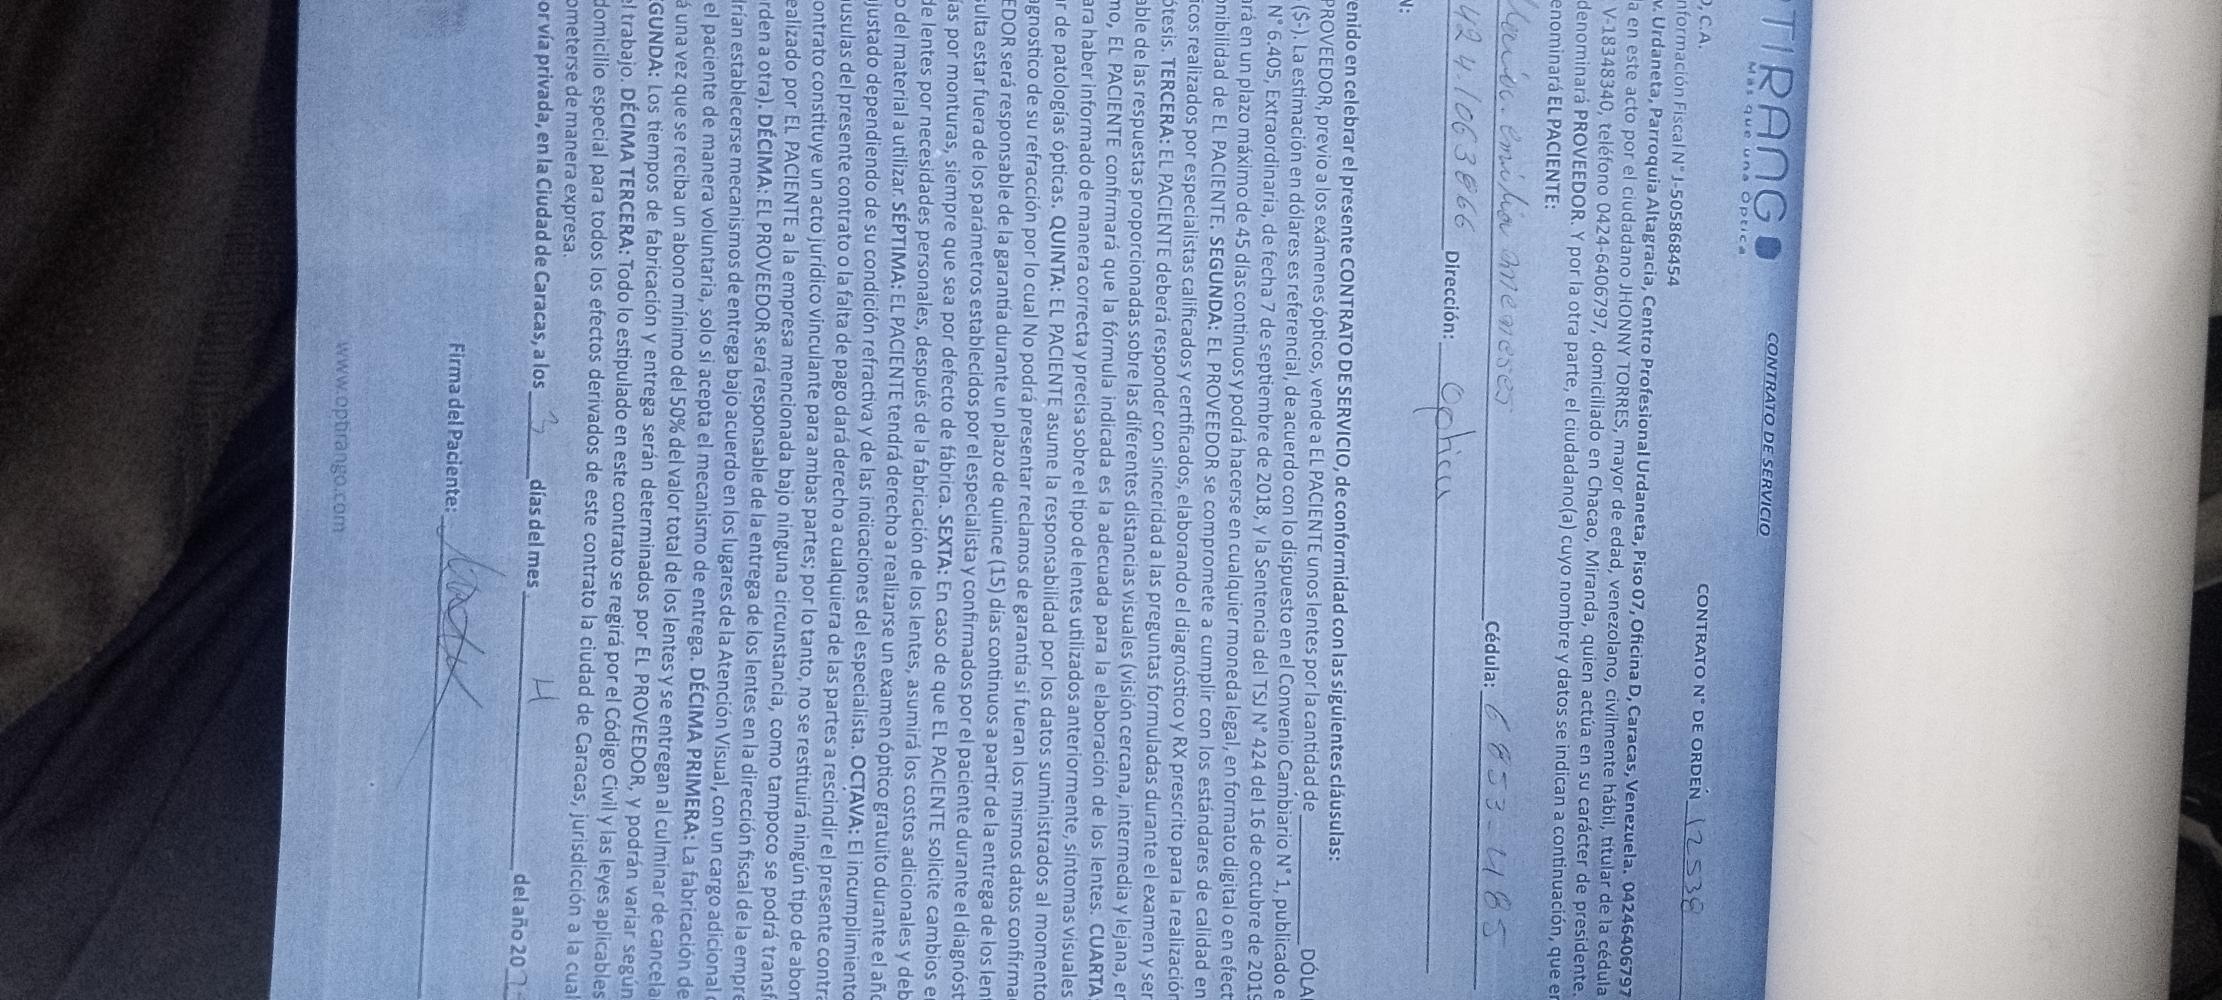 TIRANGO
Más que una Óptica
CONTRATO DE SERVICIO
CONTRATO N° DE ORDEN 12538
O, C.A.
nformación Fiscal N° J-505868454
v. Urdaneta, Parroquia Altagracia, Centro Profesional Urdaneta, Piso 07, Oficina D, Caracas, Venezuela. 04246406797
la en este acto por el ciudadano JHONNY TORRES, mayor de edad, venezolano, civilmente hábil, titular de la cédula
V-18348340, teléfono 0424-6406797, domiciliado en Chacao, Miranda, quien actúa en su carácter de presidente.
denominará PROVEEDOR. Y por la otra parte, el ciudadano(a) cuyo nombre y datos se indican a continuación, que en
enominará EL PACIENTE:
emilia meneses Cédula: 6853-485
424.1063866 Dirección: Optica
N:
enido en celebrar el presente CONTRATO DE SERVICIO, de conformidad con las siguientes cláusulas:
PROVEEDOR, previo a los exámenes ópticos, vende a EL PACIENTE unos lentes por la cantidad de DÓLA
($-). La estimación en dólares es referencial, de acuerdo con lo dispuesto en el Convenio Cambiario N° 1, publicado e
N° 6.405, Extraordinaria, de fecha 7 de septiembre de 2018, y la Sentencia del TSJ N° 424 del 16 de octubre de 2019
ará en un plazo máximo de 45 días continuos y podrá hacerse en cualquier moneda legal, en formato digital o en efect
onibilidad de EL PACIENTE. SEGUNDA: EL PROVEEDOR se compromete a cumplir con los estándares de calidad en
icos realizados por especialistas calificados y certificados, elaborando el diagnóstico y RX prescrito para la realización
ótesis. TERCERA: EL PACIENTE deberá responder con sinceridad a las preguntas formuladas durante el examen y ser
able de las respuestas proporcionadas sobre las diferentes distancias visuales (visión cercana, intermedia y lejana, en
mo, EL PACIENTE confirmará que la fórmula indicada es la adecuada para la elaboración de los lentes. CUARTA:
ara haber informado de manera correcta y precisa sobre el tipo de lentes utilizados anteriormente, síntomas visuales
r de patologías ópticas. QUINTA: EL PACIENTE asume la responsabilidad por los datos suministrados al momento
agnostico de su refracción por lo cual No podrá presentar reclamos de garantía si fueran los mismos datos confirma
EDOR será responsable de la garantía durante un plazo de quince (15) días continuos a partir de la entrega de los len
sulta estar fuera de los parámetros establecidos por el especialista y confirmados por el paciente durante el diagnóst
ías por monturas, siempre que sea por defecto de fábrica. SEXTA: En caso de que EL PACIENTE solicite cambios e
de lentes por necesidades personales, después de la fabricación de los lentes, asumirá los costos adicionales y deb
o del material a utilizar. SÉPTIMA: EL PACIENTE tendrá derecho a realizarse un examen óptico gratuito durante el año
justado dependiendo de su condición refractiva y de las indicaciones del especialista. OCTAVA: El incumplimiento
usulas del presente contrato o la falta de pago dará derecho a cualquiera de las partes a rescindir el presente contra
ontrato constituye un acto jurídico vinculante para ambas partes; por lo tanto, no se restituirá ningún tipo de abon
ealizado por EL PACIENTE a la empresa mencionada bajo ninguna circunstancia, como tampoco se podrá transf
rden a otra). DÉCIMA: EL PROVEEDOR será responsable de la entrega de los lentes en la dirección fiscal de la empre
drían establecerse mecanismos de entrega bajo acuerdo en los lugares de la Atención Visual, con un cargo adicional
el paciente de manera voluntaria, solo si acepta el mecanismo de entrega. DÉCIMA PRIMERA: La fabricación de
á una vez que se reciba un abono mínimo del 50% del valor total de los lentes y se entregan al culminar de cancela
GUNDA: Los tiempos de fabricación y entrega serán determinados por EL PROVEEDOR, y podrán variar según
el trabajo. DÉCIMA TERCERA: Todo lo estipulado en este contrato se regirá por el Código Civil y las leyes aplicables
domicilio especial para todos los efectos derivados de este contrato la ciudad de Caracas, jurisdicción a la cual
ometerse de manera expresa.
or vía privada, en la Ciudad de Caracas, a los 3 días del mes 4 del año 202
Firma del Paciente:
www.optirango.com